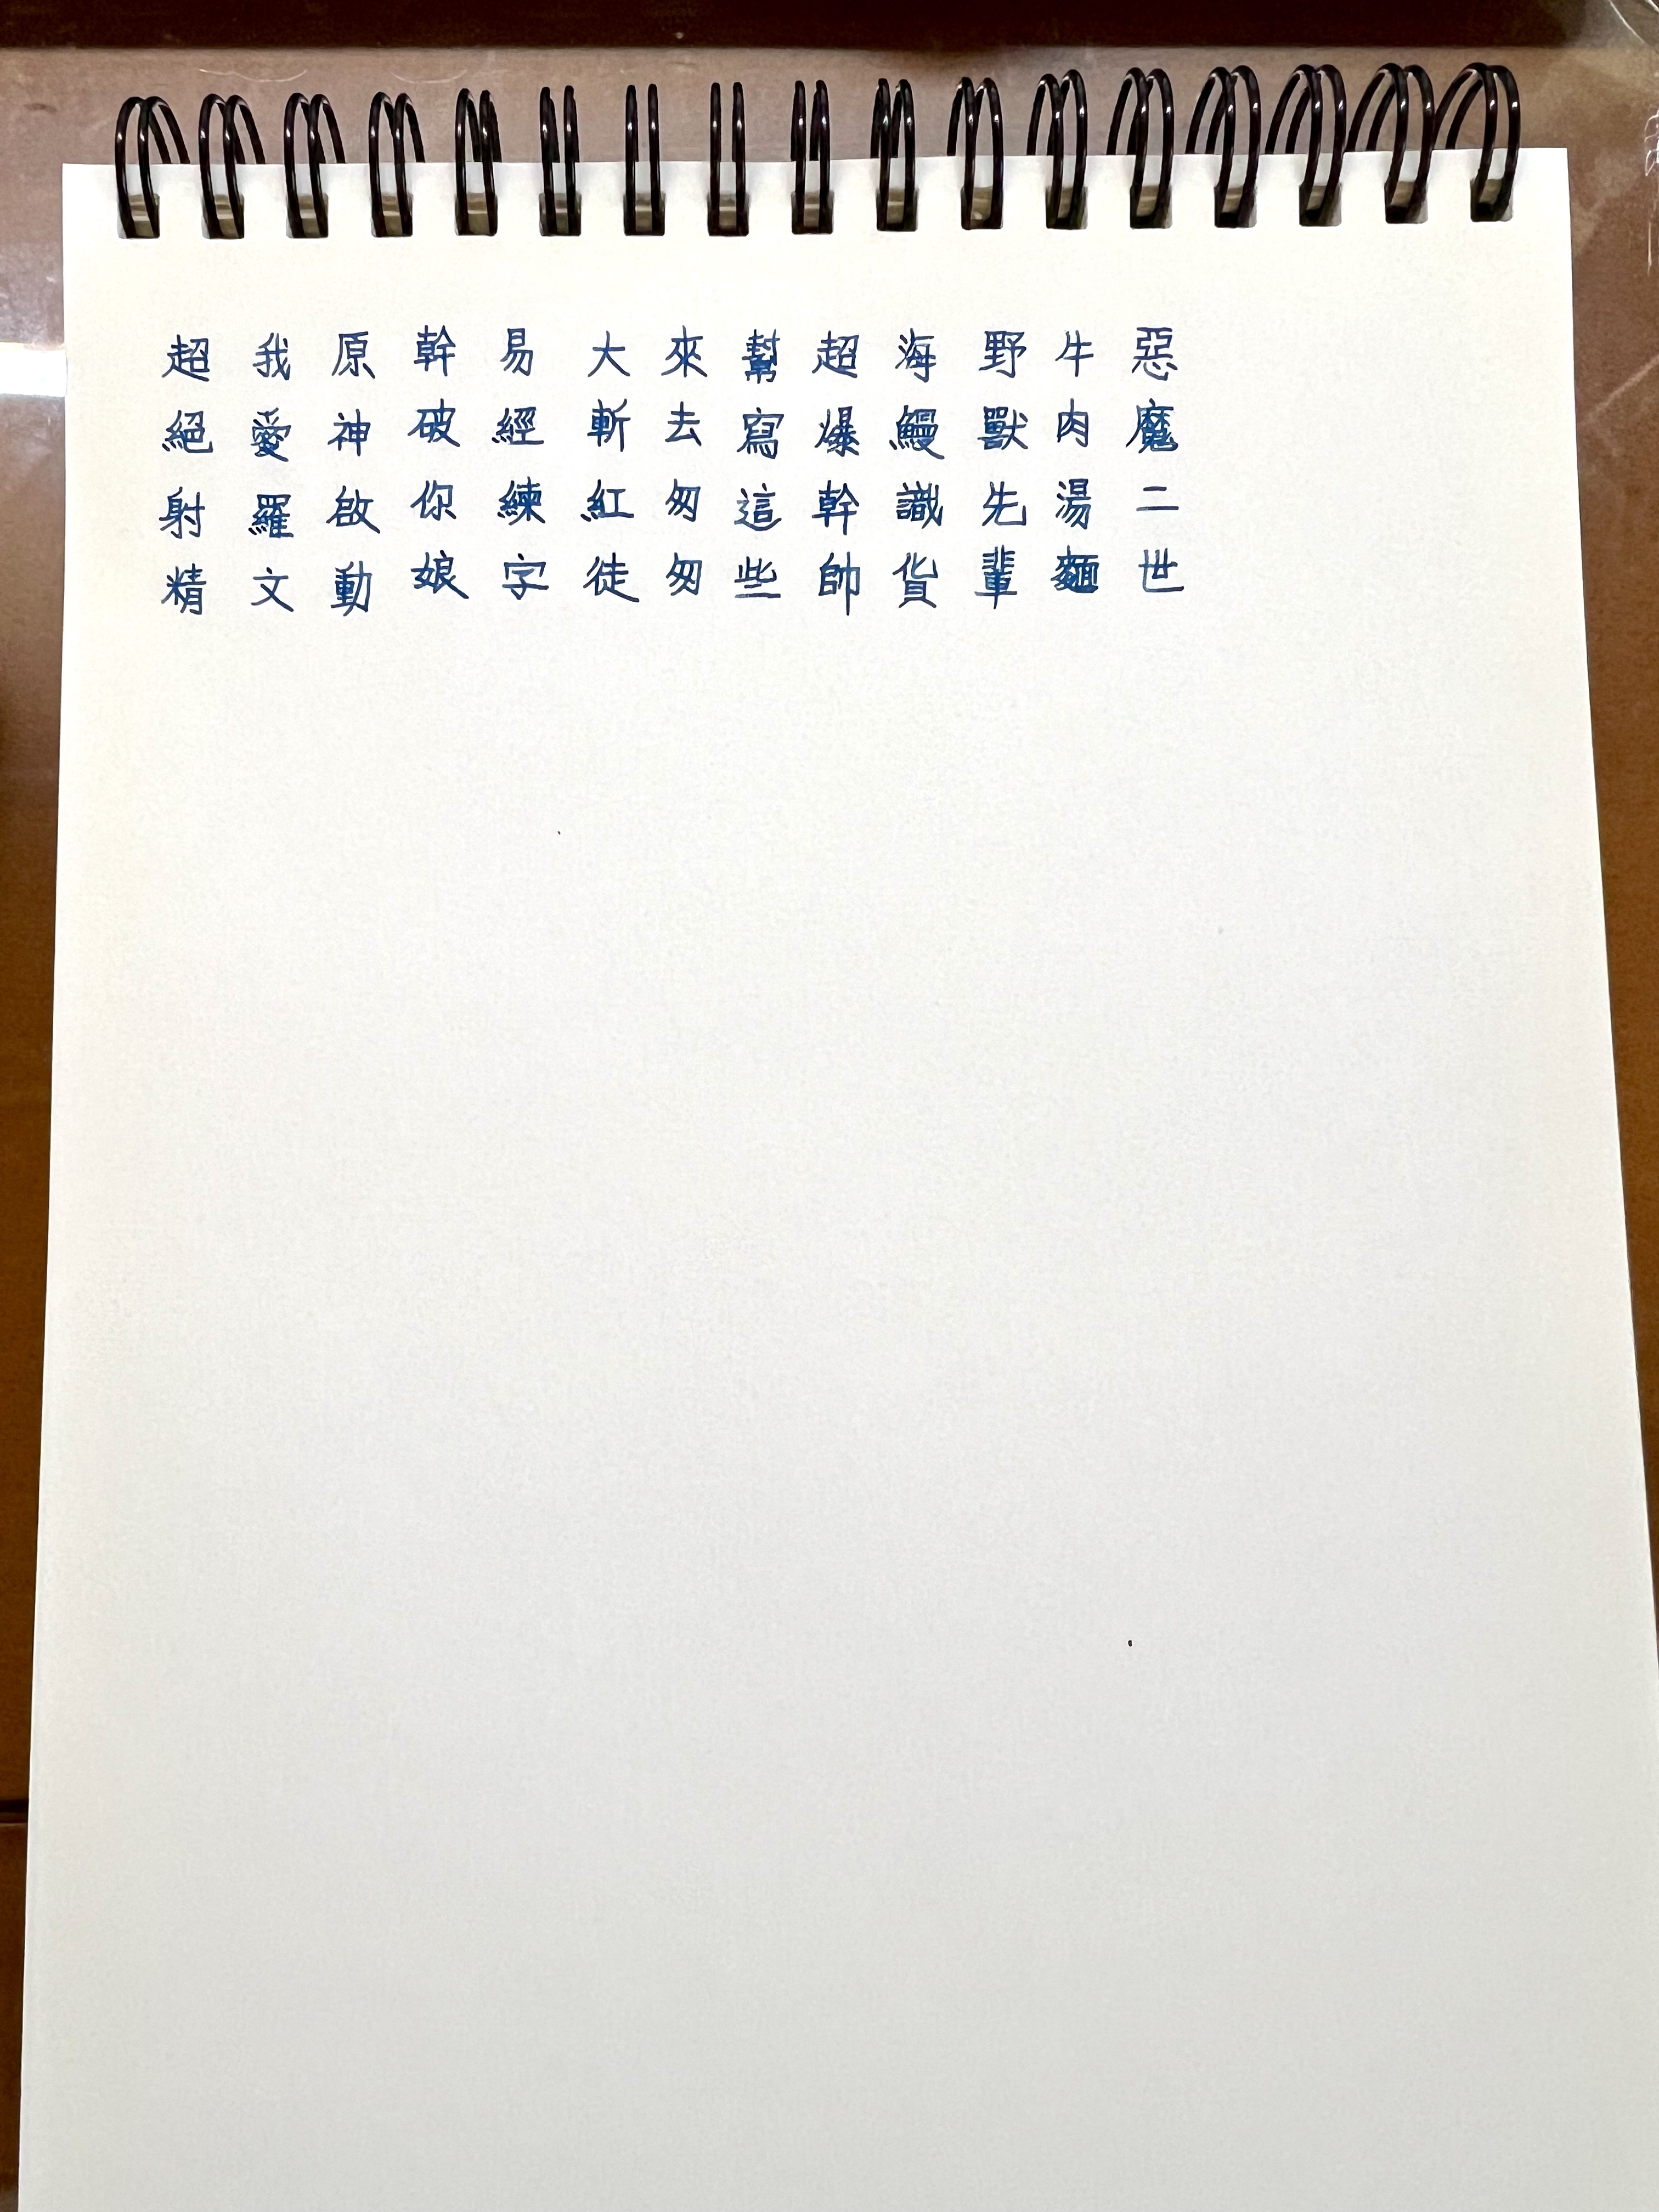 超絕射精
我愛羅文
原神啟動
幹破你娘
易經練字
大斬紅徒
來去匆匆
幫寫這些
超爆幹帥
海鰻識貨
野獸先輩
牛肉湯麵
惡魔二世